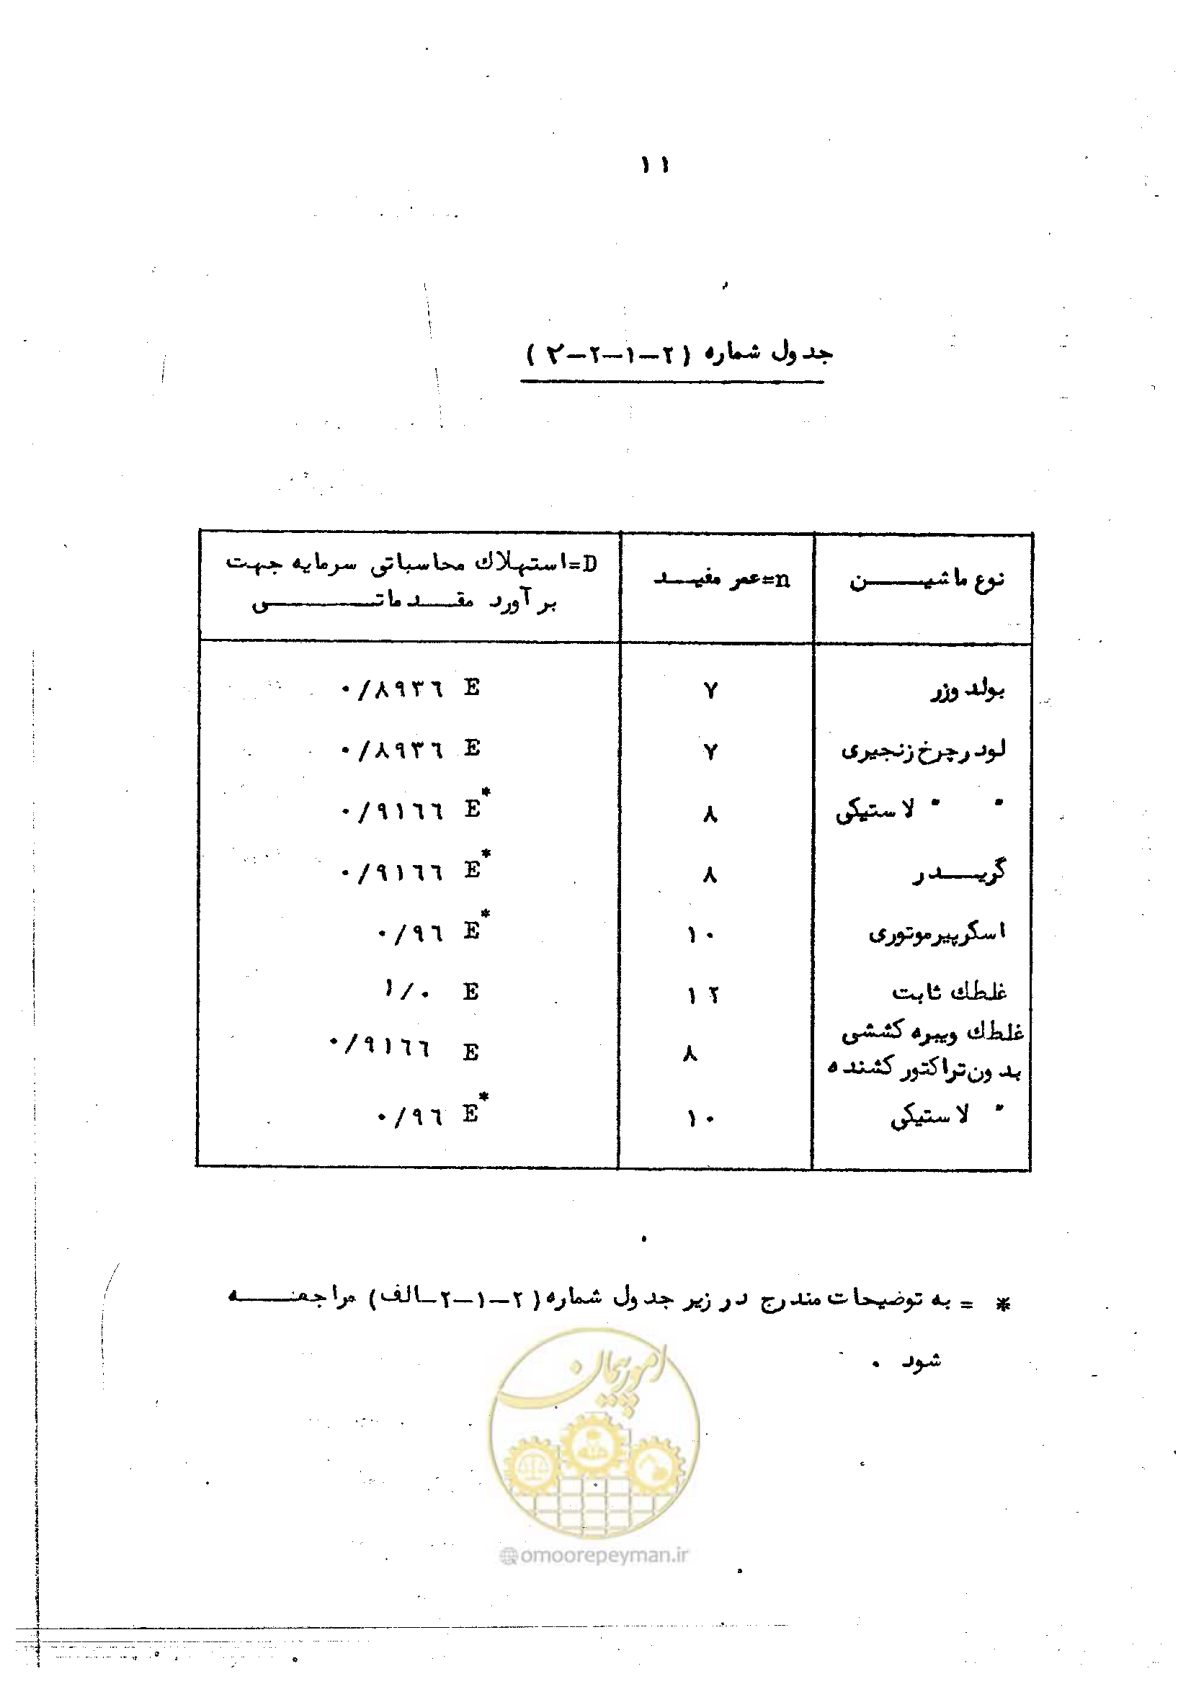 ۱۱
جدول شماره (۲-۱-۲-۲)
نوع ماشین	n=عمر مفید	D=استهلاك محاسباتی سرمایه جهت
برآورد مقدماتی
بولدوزر	۷	۰/۸۹۳۶ E
لودرچرخ زنجیری	۷	۰/۸۹۳۶ E
" " لاستیکی	۸	۰/۹۱۶۶ E*
گریدر	۸	۰/۹۱۶۶ E*
اسکرپیرموتوری	۱۰	۰/۹۶ E*
غلطك ثابت	۱۲	۱/۰ E
غلطك ویبره کششی
بدون تراکتور کشنده	۸	۰/۹۱۶۶ E
" لاستیکی	۱۰	۰/۹۶ E*
* = به توضیحات مندرج در زیر جدول شماره (۲-۱-۲-الف) مراجعه
شود .
امور پیمان
@omoorepeyman.ir